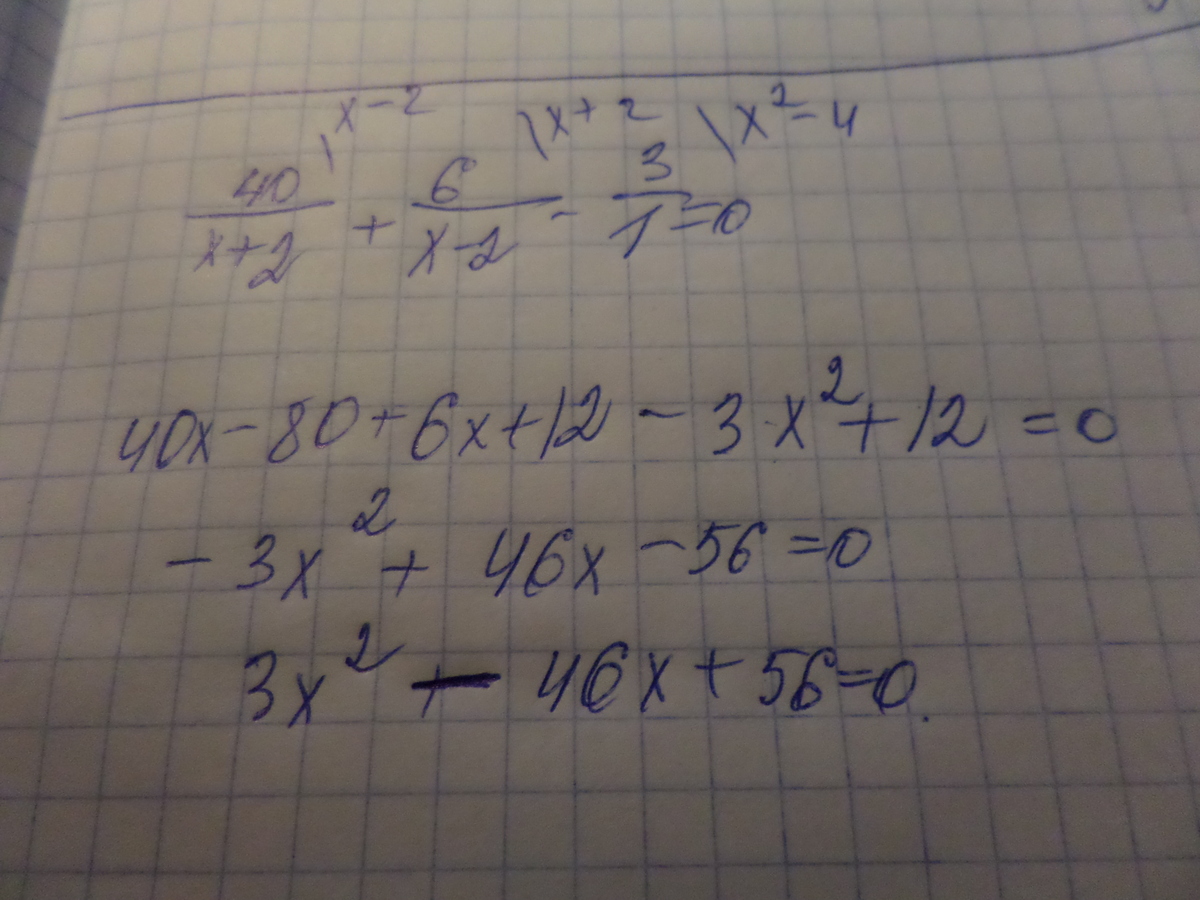 \x-2 \x+2 \x²-4
40/(x+2) + 6/(x-2) - 3/1 = 0
40x - 80 + 6x + 12 - 3x² + 12 = 0
- 3x² + 46x - 56 = 0
3x² - 46x + 56 = 0.